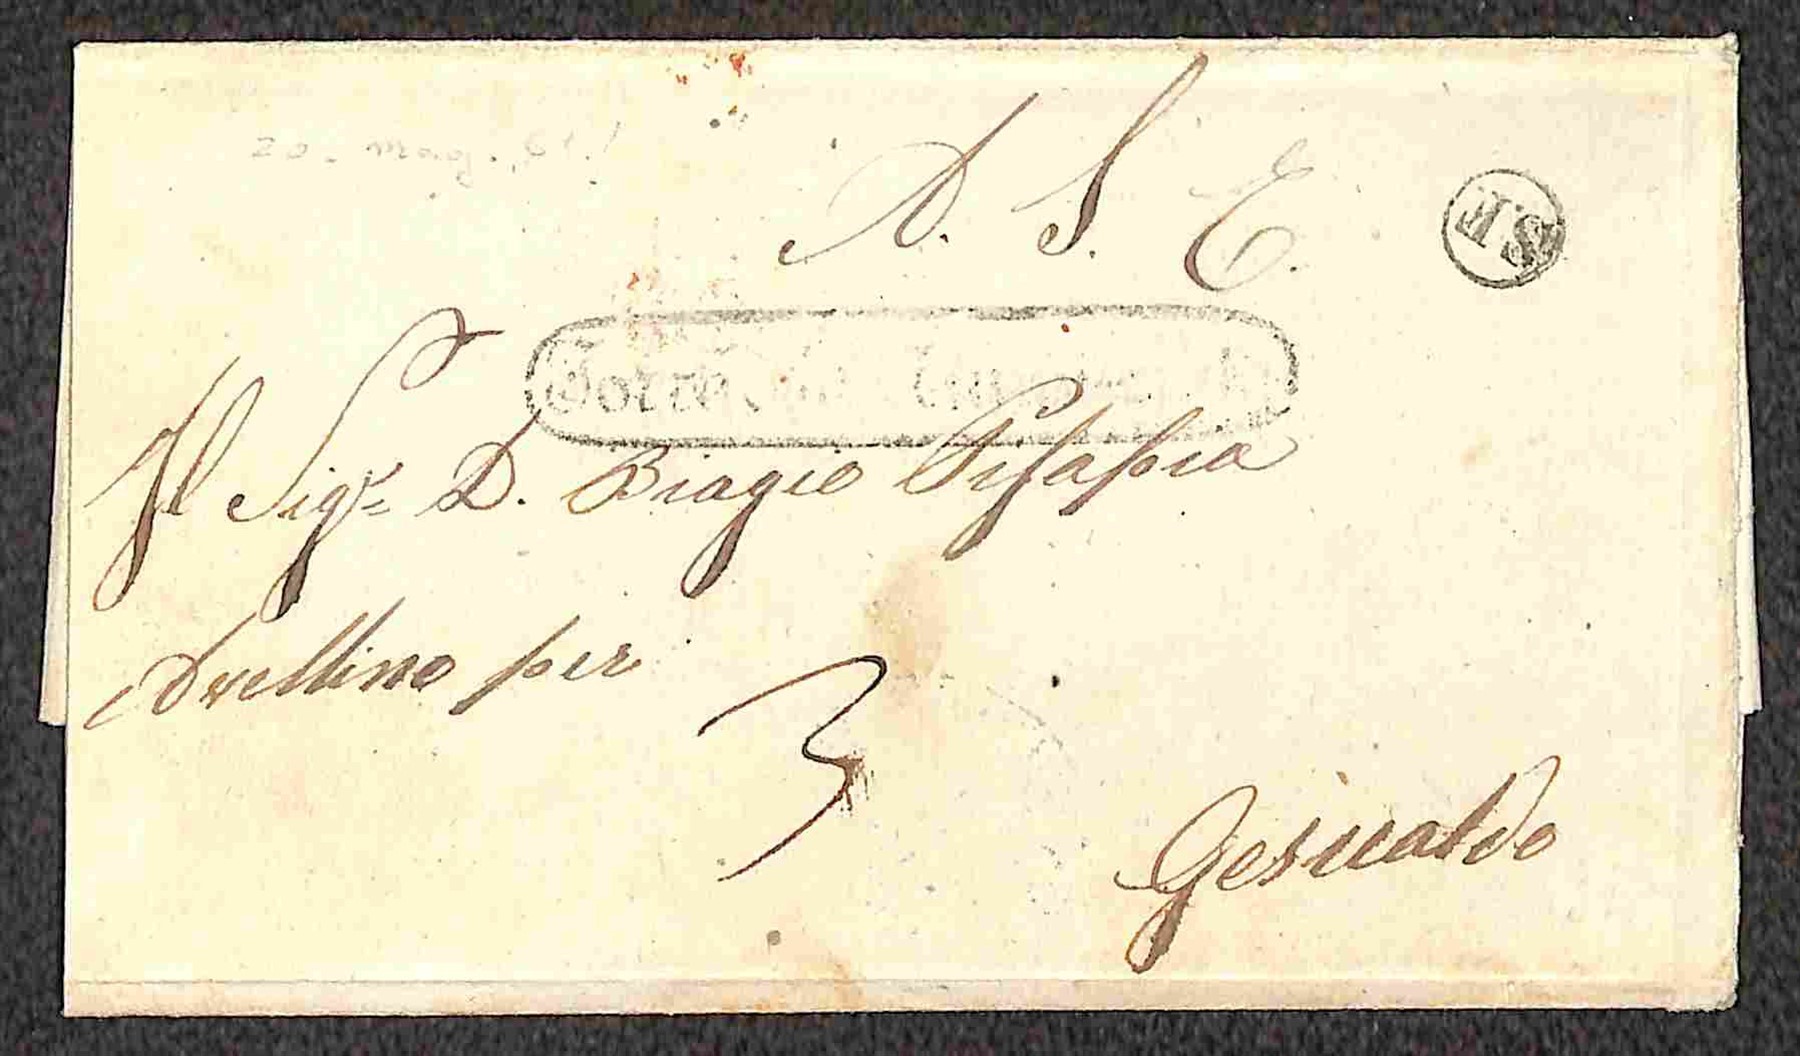 20 - mag. 61.
A. S. E.
S.F
Torre
Il Sigr. D. Biagio Pisapia
Avellino per
3
Gesualdo